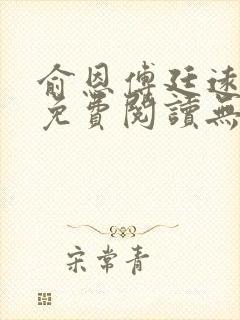 俞恩傅廷远
免費閱讀無
宋常青